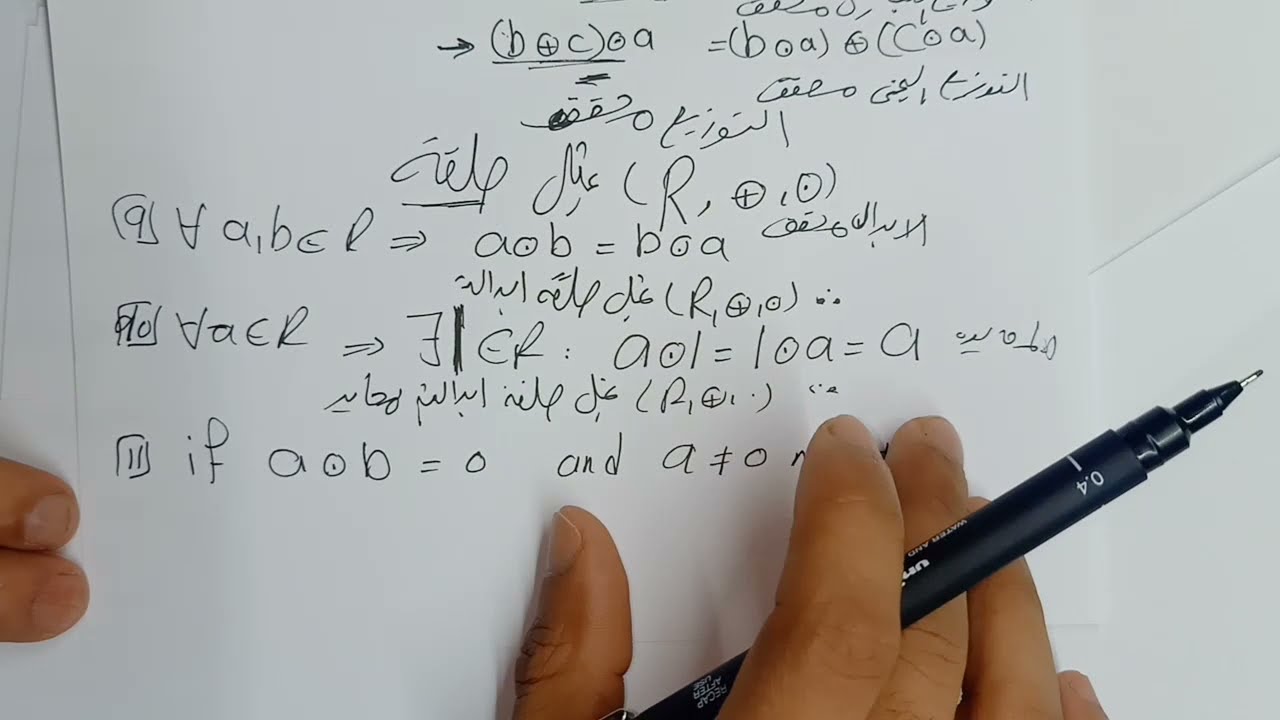 → (b ⊕ c) ⊙ a = (b ⊙ a) ⊕ (c ⊙ a)
التوزيع اليمنى محقق
التوزيع محقق
(R, ⊕, ⊙) تمثل حلقة
[9] ∀ a, b ∈ R ⇒ a ⊙ b = b ⊙ a الابدال محقق
∴ (R, ⊕, ⊙) تمثل حلقة ابدالية
[10] ∀ a ∈ R ⇒ ∃ 1 ∈ R : a ⊙ 1 = 1 ⊙ a = a
∴ (R, ⊕, ·) تمثل حلقة ابدالية بمحايد
[11] if a ⊙ b = 0 and a ≠ 0
0.4
uni
WATER AND
RECAP
AFTER
USE